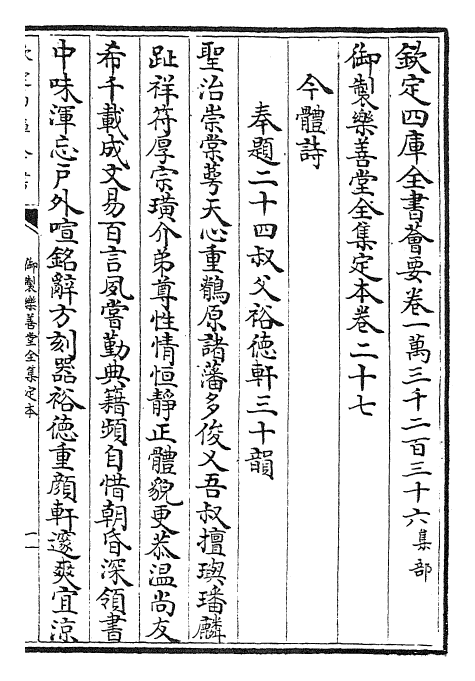 欽定四庫全書薈要卷一萬三千二百三十六集部
御製樂善堂全集定本卷二十七
今體詩
奉題二十四叔父裕德軒三十韻
聖治崇棠萼天心重鶺原諸藩多俊乂吾叔擅璵璠麟
趾祥符厚宗璜介弟尊性情恒靜正體貌更恭溫尚友
希千載成文易百言夙嘗勤典籍頻自惜朝昏深領書
中味渾忘戸外喧銘辭方刻器裕德重顔軒邃爽宜涼
御製樂善堂全集定本